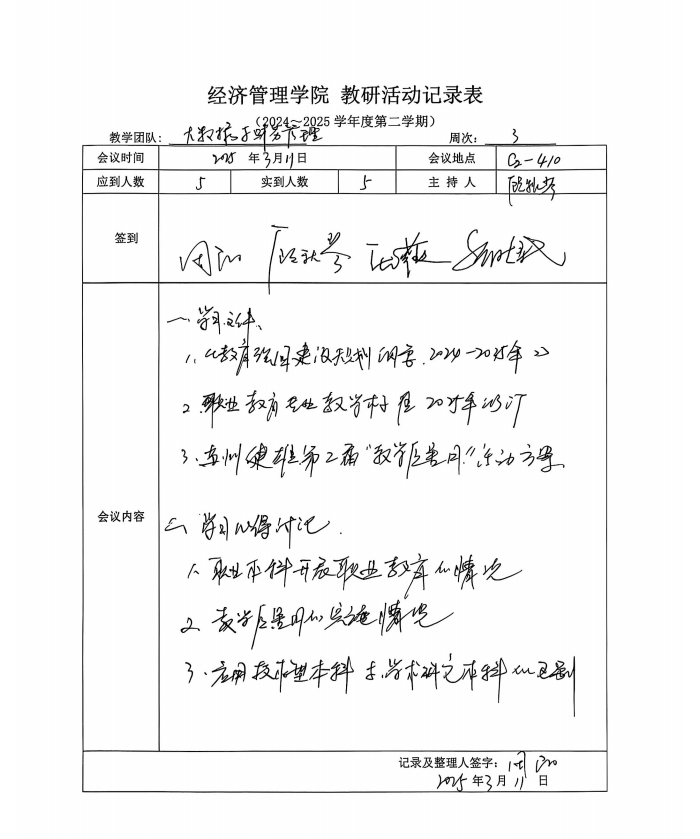 经济管理学院 教研活动记录表
（2024~2025 学年度第二学期）
教学团队： 大数据与财务管理 周次： 3
会议时间 2025 年 3 月 11 日 会议地点 G2-410
应到人数 5 实到人数 5 主 持 人
签到
会议内容
一、学习文件、
1、《教育强国建设规划纲要.2024-2035年》
2、职业教育专业教学标准 2025年修订
3、苏州健雄第2届“教学质量月”活动方案
二、学习心得讨论.
1、职业本科开展职业教育的情况
2、教学质量月的实施情况
3、应用技术型本科与学术研究本科的区别
记录及整理人签字：
2025 年 3 月 11 日